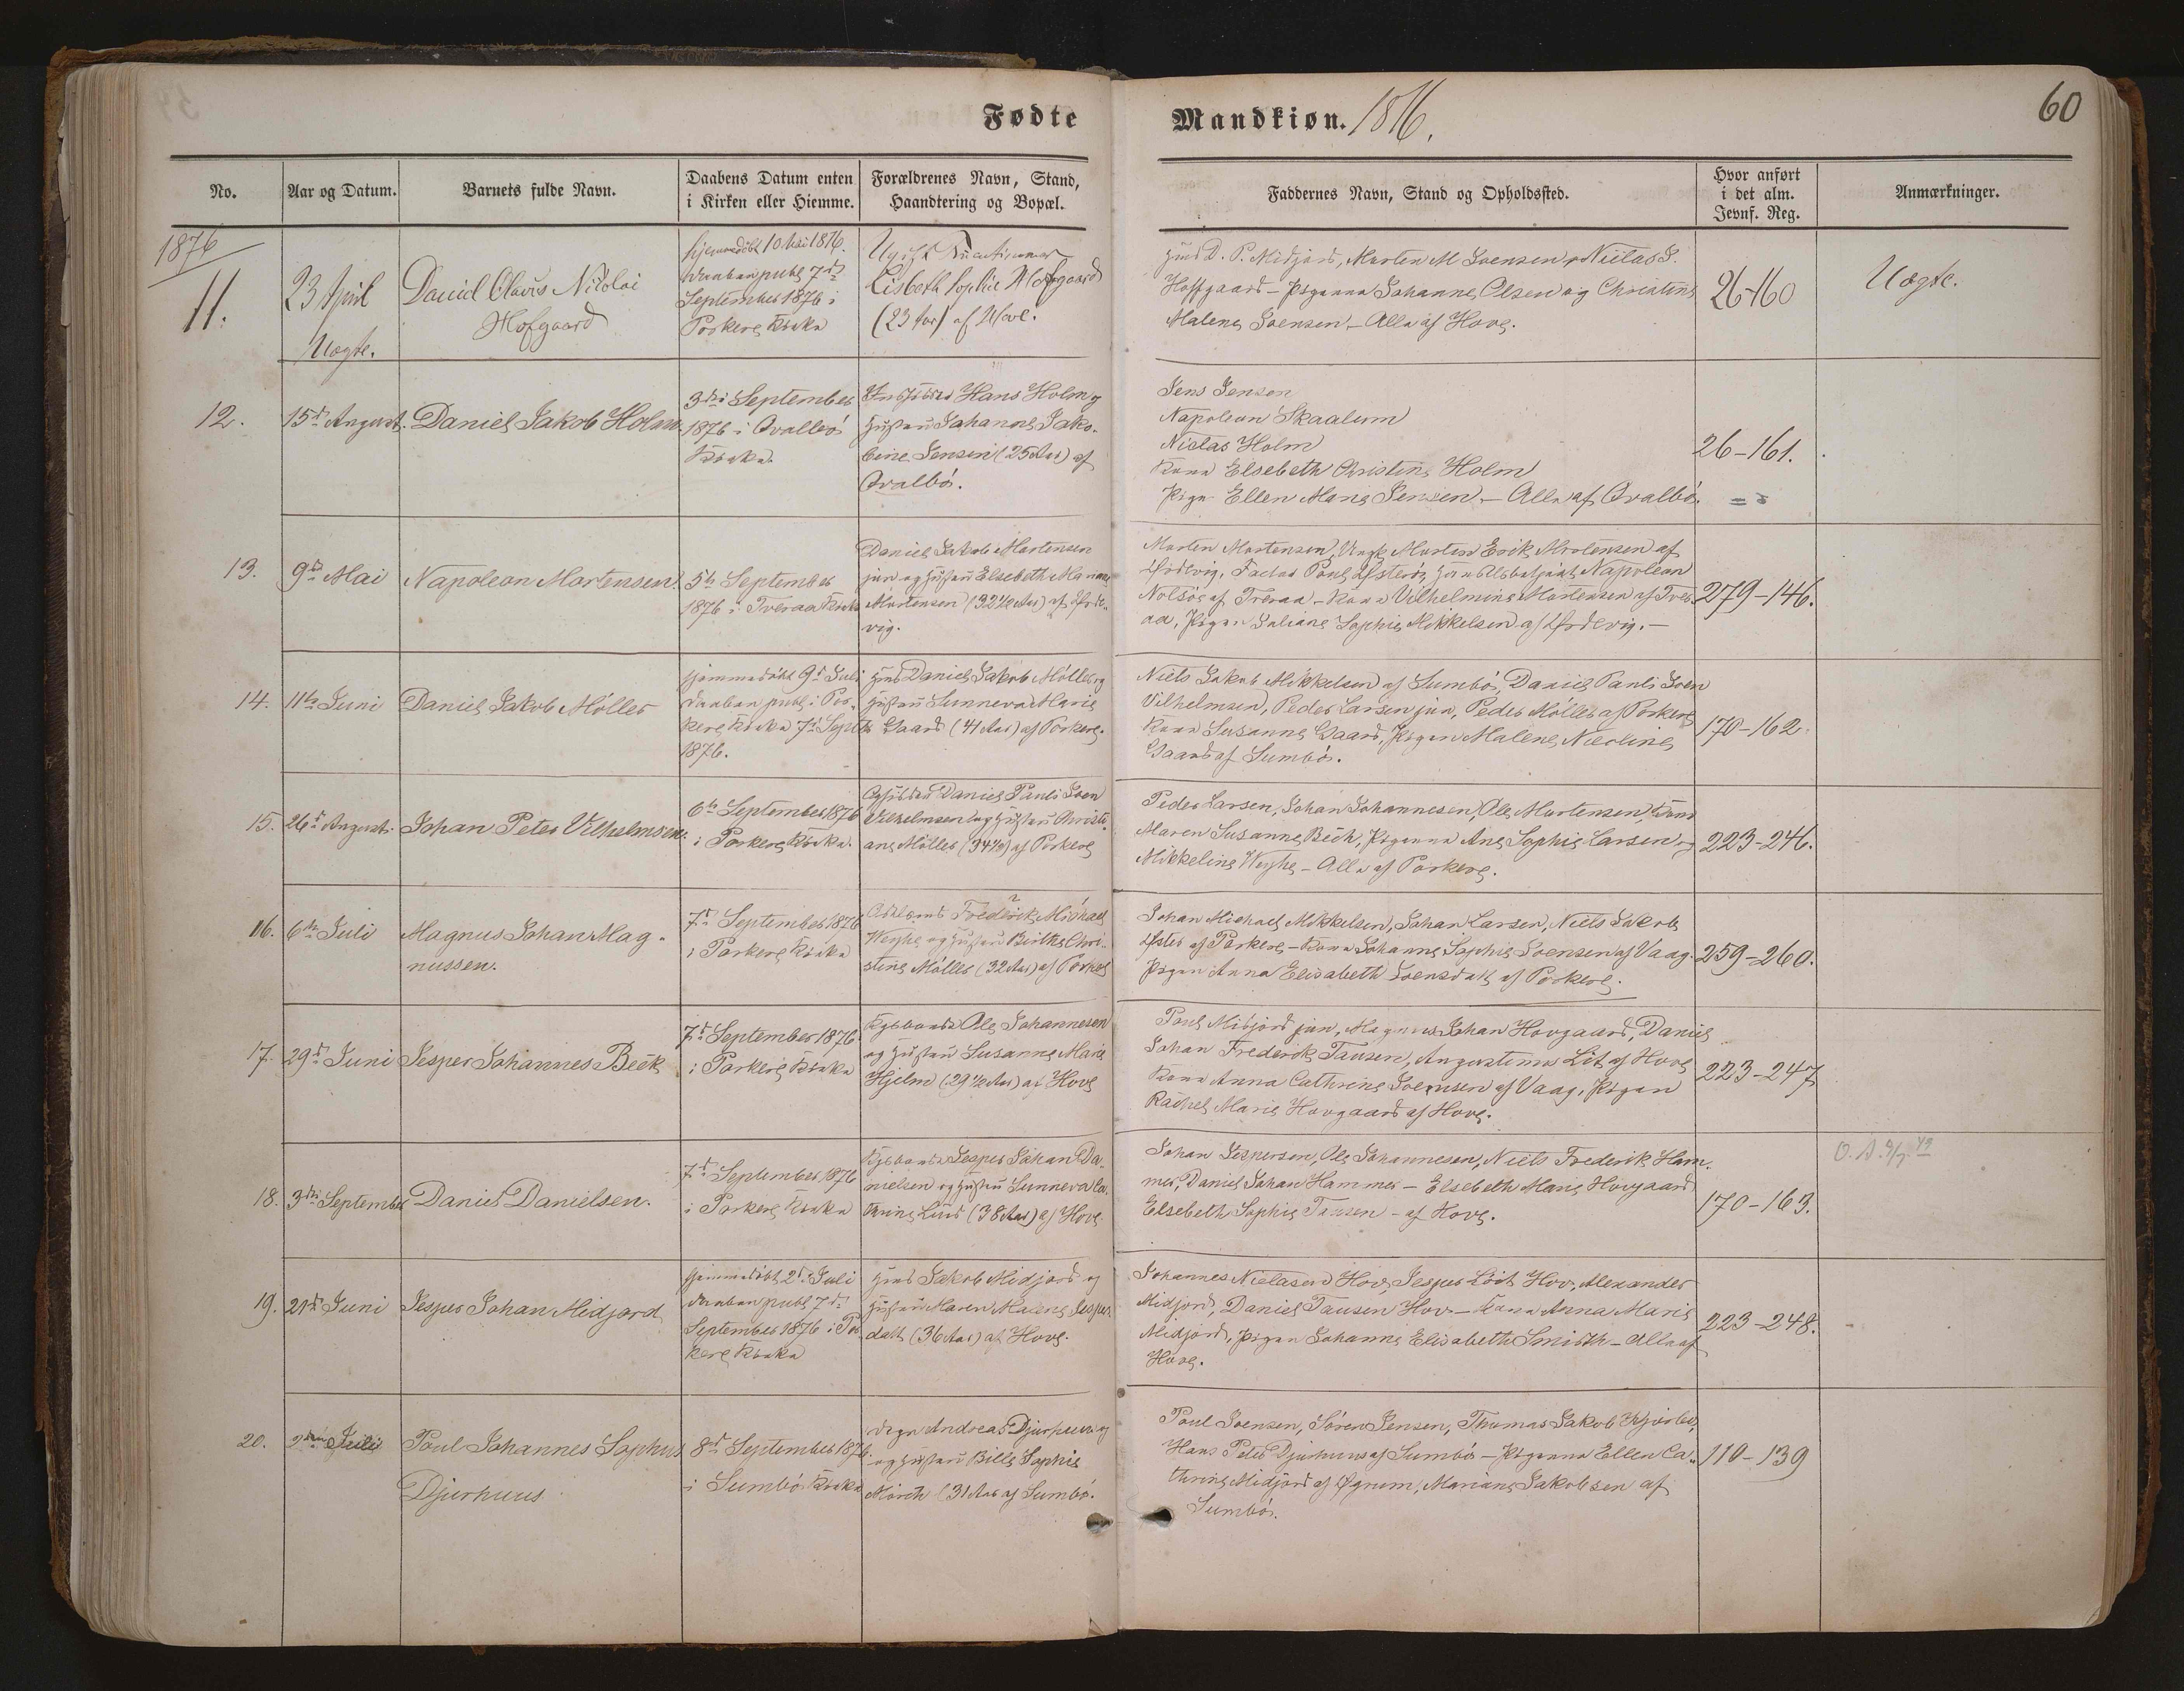 Fødte
Mandkiøn. 1876.
60
No.
Aar og Datum.
Barnets fulde Navn.
Daabens Datum enten
i Kirken eller Hiemme.
Forældrenes Navn, Stand,
Haandtering og Bopæl.
Faddernes Navn, Stand og Opholdssted.
Hvor anført
i det alm.
Jevnf. Reg.
Anmærkninger.
1876
11.
23 April
Uægte.
Daniel Olavus Nikolai
Hofgaard
hjemmedøbt 10 Mai 1876.
Daaben publ 7de
September 1876 i
Porkere Kirke
Ugift
Lisbeth Sophie Hofgaard
(23 Aar) af Hove.
D. P. Midjord, Morten M Svensen, Niclas S.
Hofgaard - Pigerne Johanne Olsen og Christine
Malene Svensen - Alle af Hove.
26-160
Uægte.
12.
15de August.
Daniel Jakob Holm.
3die September
1876 i Qvalbø
Kirke.
Hans Holm og
Hustru Johanne Jako-
bine Jensen (25 Aar) af
Qvalbø.
Jens Jensen
Napoleon Skaalum
Niclas Holm
Kone Elsebeth Christine Holm
Pige Ellen Marie Jensen - Alle af Qvalbø.
26-161.
13.
9de Mai
Napoleon Mortensen.
5te September
1876 i Tveraa Kirke
Daniel Jakob Mortensen
jun og Hustru Elsebeth Marianne
Mortensen (32½ Aar) af Frod-
vig.
Morten Mortensen, Ungk Morten Erik Mortensen af
Frodevig, Factor Poul Effersøe, Napoleon
Nolsøe af Tveraa - Kone Vilhelmine Mortensen af Tver-
aa, Pigen Juliane Sophie Mikkelsen af Frodevig. -
279-146.
14.
11te Juni
Daniel Jakob Møller
hjemmedøbt 9de Juli
Daaben publ i Por-
kere Kirke 7de Septb
1876.
Daniel Jakob Møller og
Hustru Sunneva Marie
Gaard (41 Aar) af Porkere.
Niels Jakob Mikkelsen af Sumbø, Daniel Pauli Sven
Vilhelmsen, Peder Larsen jun, Peder Møller af Porkere
Kone Susanne Gaard, Pigen Malene Nicoline
Gaard af Sumbø.
170-162.
15.
26de August.
Johan Peter Vilhelmsen.
6te September 1876
i Porkere Kirke.
Daniel Pauli Sven
Vilhelmsen og Hustru Christi-
ane Møller (34½) af Porkere
Peder Larsen, Johan Johannesen, Ole Mortensen, Kone
Maren Susanne Beck, Pigerne Ane Sophie Larsen og
Mikkeline Weyhe - Alle af Porkere.
223-246.
16.
6te Juli
Magnus Johan Mag-
nussen.
7de September 1876
i Porkere Kirke
Frederik Michael
Weyhe og Hustru Birthe Chri-
stine Møller (32 Aar) af Porkere
Johan Michael Mikkelsen, Johan Larsen, Niels Jakob
Øster af Porkere - Kone Johanne Sophie Svensen af Vaag.
Pigen Anna Elisabeth Svensdatt af Porkere.
259-260.
17.
29de Juni
Jesper Johannes Beck
7de September 1876
i Porkere Kirke
Ole Johannesen
og Hustru Susanne Marie
Hjelm (29½ Aar) af Hove
Poul Midjord jun, Magnus Johan Hovgaard, Daniel
Johan Frederik Tausen, Augustinus Lit af Hove
Kone Anna Cathrine Svensen af Vaag, Pigen
Rachel Marie Hovgaard af Hove.
223-247
18.
3die September
Daniel Danielsen.
7de September 1876
i Porkere Kirke
Jesper Johan Da-
nielsen og Hustru Sunneva Ca-
thrine Lund (38 Aar) af Hove.
Johan Jespersen, Ole Johannesen, Niels Frederik Ham-
mer, Daniel Johan Hammer - Elsebeth Marie Hovgaard
Elsebeth Sophie Tausen - af Hove.
170-163.
19.
21de Juni
Jesper Johan Midjord
hjemmedøbt 2de Juli
Daaben publ 7de
September 1876 i Por
kere Kirke
Jakob Midjord og
Hustru Maren Malene Jespers
datt (36 Aar) af Hove.
Johannes Niclasen Hov, Jesper Loit Hov, Alexander
Midjord, Daniel Tausen Hov - Kone Anna Marie
Midjord, Pigen Johanne Elisabeth Smidth - Alle af
Hove.
223-248.
20.
2den Juli
Poul Johannes Sophus
Djurhuus
8de September 1876
i Sumbø Kirke
Andreas Djurhuus og
og Hustru Bille Sophie
Mörch (31 Aar af Sumbø.
Poul Svensen, Søren Jensen, Thomas Jakob Kjærbo,
Hans Peter Djurhuus af Sumbø - Pigerne Ellen Ca-
thrine Midjord af Øgrum, Mariane Jakobsen af
Sumbø.
110-139